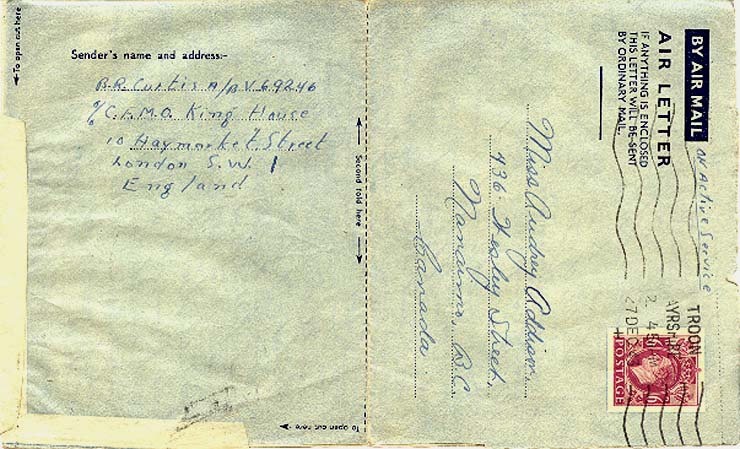 To open cut here
Sender's name and address:-
B.R. Curtis A/B V 69246
℅ C.F.M.O. King House
10 Haymarket Street
London S.W. 1
England
Second fold here
To open cut here
BY AIR MAIL
AIR LETTER
IF ANYTHING IS ENCLOSED
THIS LETTER WILL BE SENT
BY ORDINARY MAIL.
On Active Service
Miss Audrey Addison,
436 Wesley Street,
Nanaimo, B.C.
Canada
TROON
AYRSHIRE
27 DEC
POSTAGE